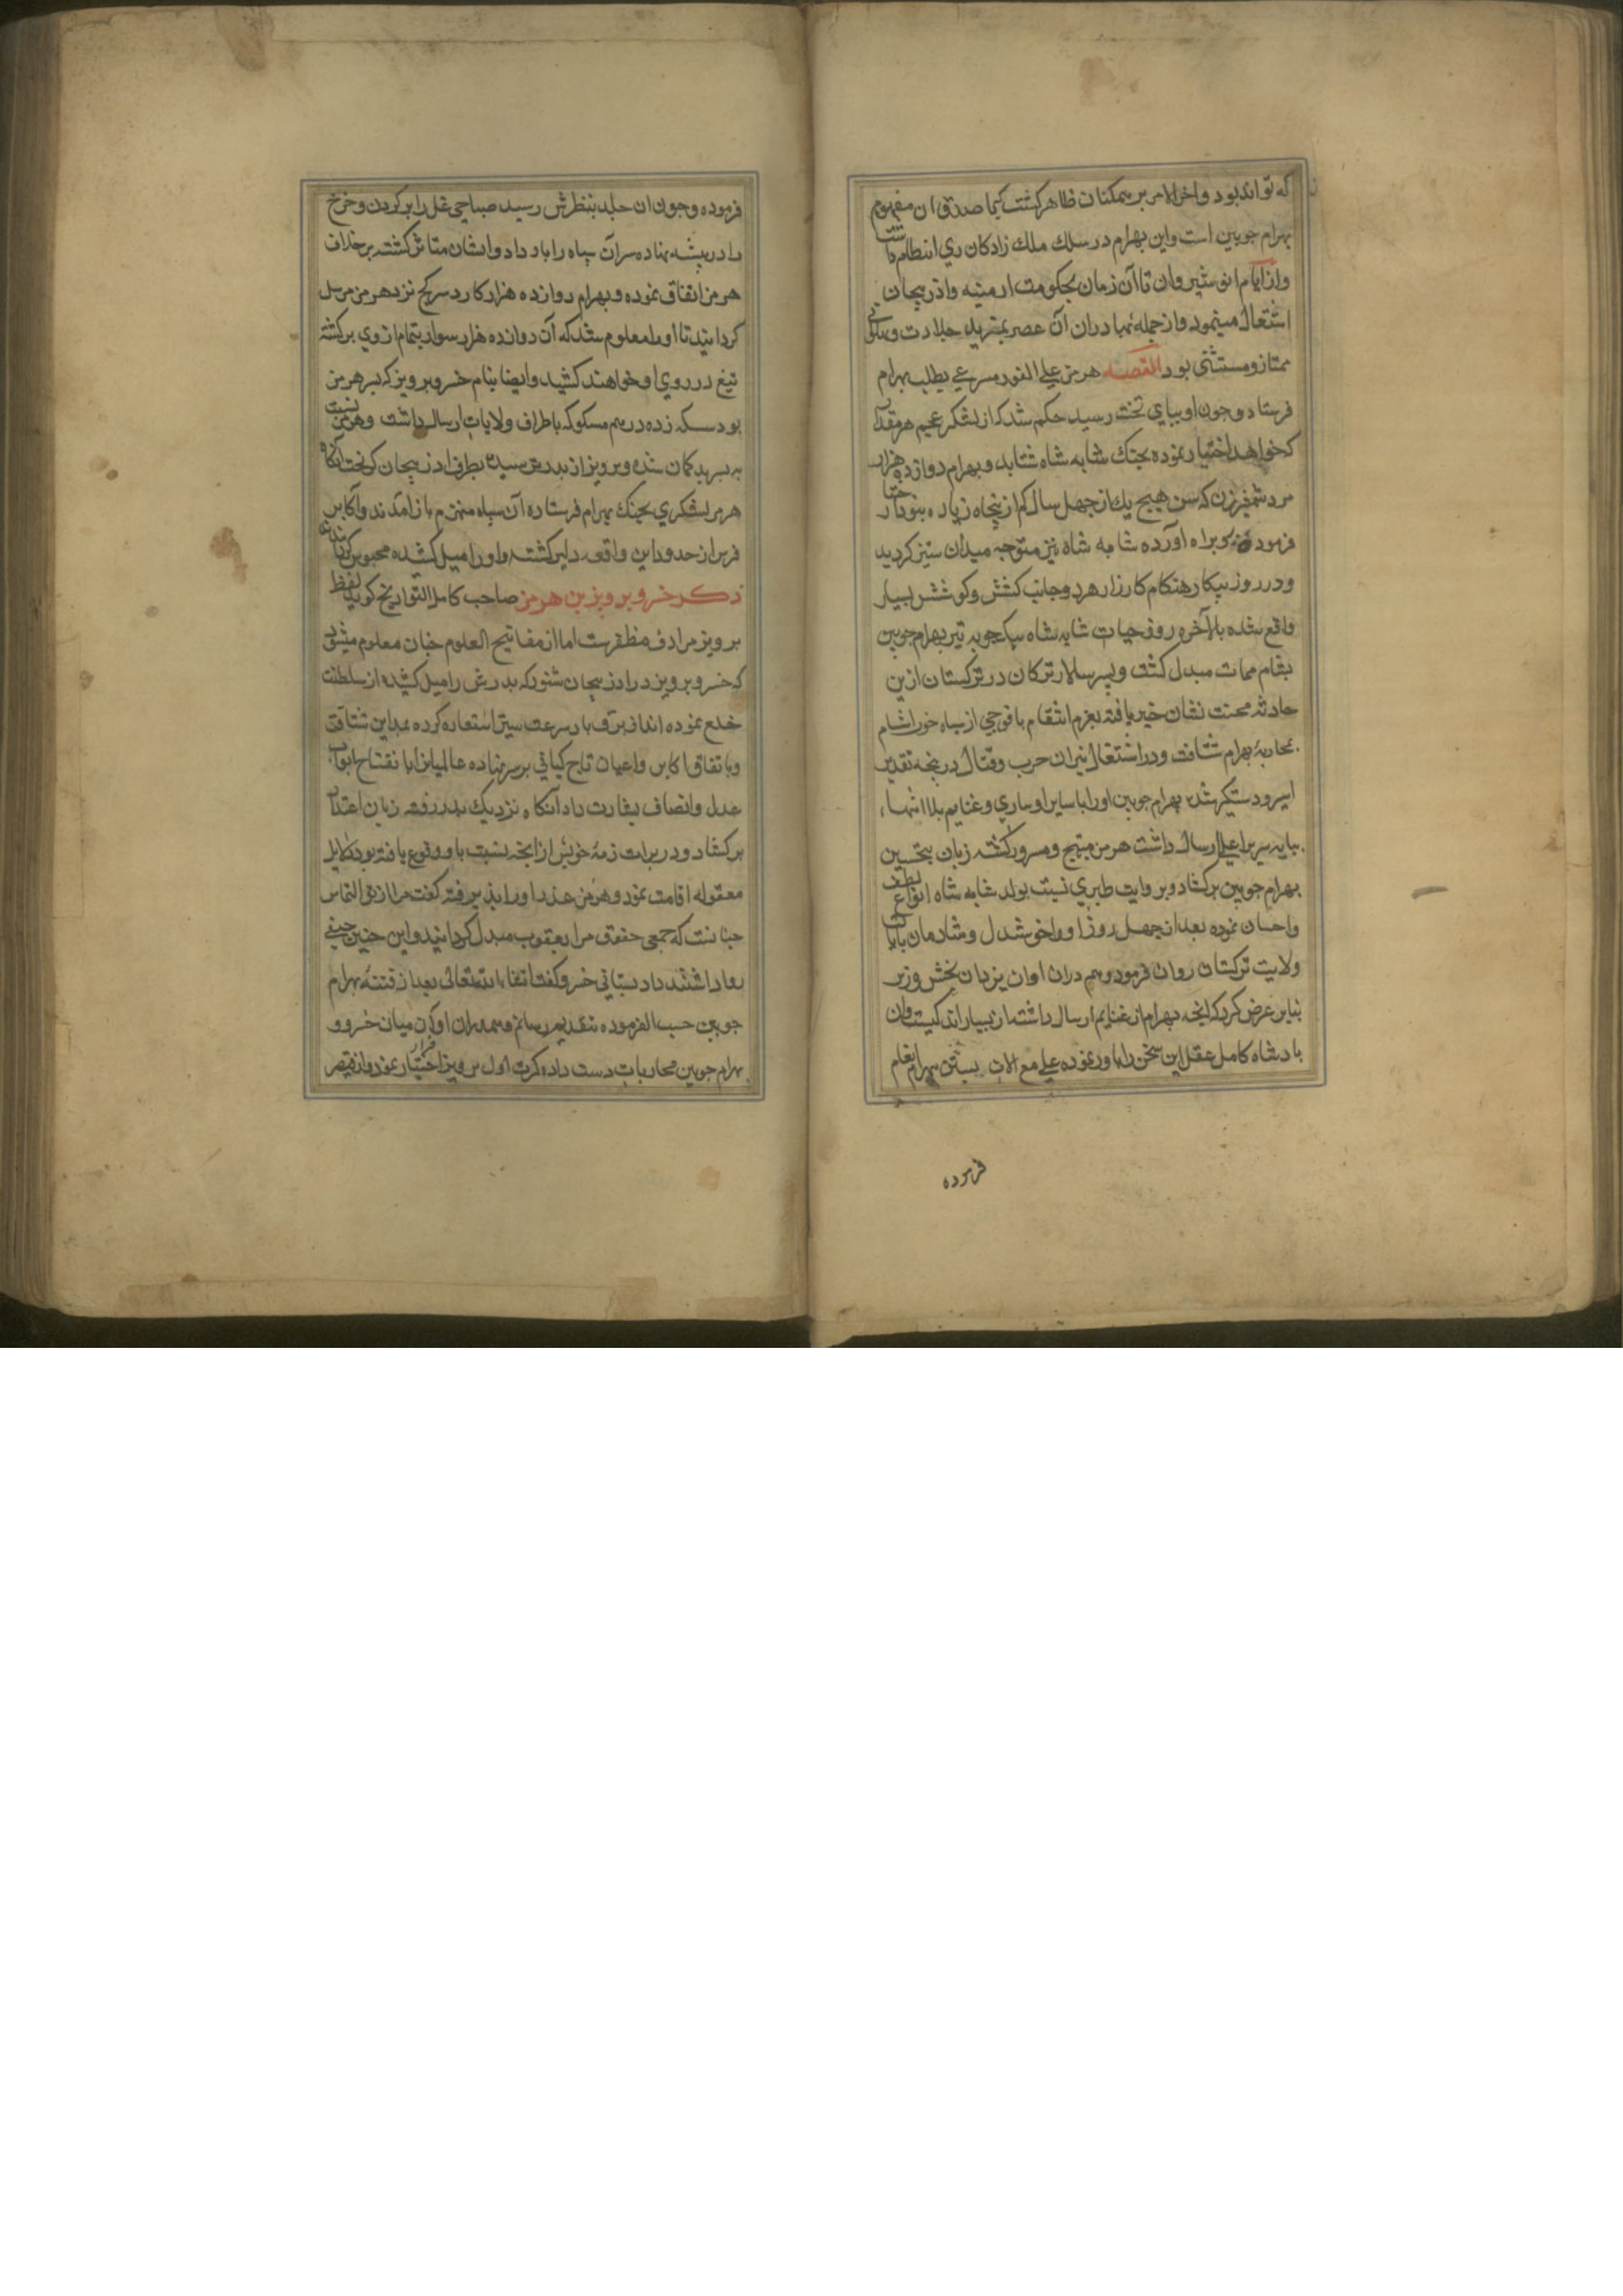 که تواند بود و اخر الامر بر همکنان ظاهر کشت کما صدق ان مفهوم
بهرام جوبین است واین بهرام در سلک ملک زادکان ری انتظام داشت
واز ایام انوشیروان تا آن زمان بحکومت ارمنیه واذربیجان
اشتغال مینمود واز جمله بهادران آن عصر بمزید جلادت و
ممتاز ومستثنی بود القصه هرمز علی الفور مسرعی بطلب بهرام
فرستاد وجون او ببای تخت رسید حکم شد که از لشکر عجم هر مقدار
که خواهد اختیار نموده بجنک شابه شاه شتابد وبهرام دوازده هزار
مرد شمشیرزن که سن هیج یک از جهل سال کم از بنجاه زیاده نبود اختیار
فرموده روبراه آورده شابه شاه نیز متوجه میدان ستیز کردید
ودر روز بیکار هنکام کارزار هر دو جانب کشش وکوشش بسیار
واقع شده بالآخره روز حیات شابه شاه بیک جوبه تیر بهرام جوبین
بشام ممات مبدل کشت وبسر سالار ترکان در ترکستان ازین
حادثه محنت نشان خبر یافته بعزم انتقام با فوجی از سباه خون اشام
بمحاربهٔ بهرام شتافت ودر اشتعال نیران حرب وقتال در بنجه تقدیر
اسیر ودستکیر شد بهرام جوبین اورا با سایر اوساری وغنایم بلا انتها
ببایه سریر اعلی ارسال داشت هرمز مبتهج ومسرور کشته زبان بتحسین
بهرام جوبین برکشاد وبروایت طبری نسبت بولد شابه شاه انواع لطف
واحسان نموده بعد از جهل روز اورا خوشدل وشادمان بایالت
ولایت ترکستان روان فرمود وهم دران اوان یزدان بخش وزیر
بنابر عرض کرد که انجه بهرام از غنایم ارسال داشته از بسیار اندکیست وان
بادشاه کامل عقل این سخن را باور نموده علی مع الات بستن بهرام انعام
فرموده
فرموده وجون ان حله بنظرش رسید صباحی غل را بر کردن وجرخ
را در بیشه نهاده سران سباه را بار داد وایشان متاثر کشته برخلاف
هرمز اتفاق نموده وبهرام دوازده هزار کارد سرکج نزد هرمز مرسل
کردانید تا اورا معلوم شد که آن دوازده هزار سوار بتمام از وی برکشته
تیغ در روی او خواهند کشید وایضا بنام خسرو برویز که بسر هرمز
بود سکه زده درهم مسکوکه باطراف ولایات ارسال داشت وهرمز نسبت
به بسر بدکمان شده وبرویز از بدر ترسیده بطرف اذربیجان کریخت آنکاه
هرمز لشکری بجنک بهرام فرستاده آن سباه منهزم باز آمدند واکابر
فرس از حدود این واقعه دلیر کشته واورا میل کشیده محبوس کردانیدند
ذکر خسرو برویز بن هرمز صاحب کامل التواریخ کوید لفظ
برویز مرادف مظفرست اما از مفاتیح العلوم جنان معلوم میشود
که خسرو برویز در اذربیجان شنود که بدرش را میل کشیده از سلطنت
خلع نموده اند از برق باد سرعت سیر استعاره کرده بمداین شتافت
وباتفاق اکابر واعیان تاج کیانی بر سر نهاده عالمیان را بافتتاح ابواب
عدل وانصاف بشارت داد آنکاه نزدیک بدر رفته زبان اعتذار
برکشاد ودر برات ذمهٔ خویش از انجه نسبت باو وقوع یافته بود دلایل
معقوله اقامت نمود وهرمز عذر اورا بذیرفته کفت مرا از تو التماس
جنانست که جمعی حقوق مرا بعقوب مبدل کردانیدند واین جنین حیفی
روا داشتند داد بستانی خسرو کفت انشاءالله تعالی بعد از فتنهٔ بهرام
جوبین حسب الفرموده بتقدیم رسانم وهم دران اوان میان خسرو و
بهرام جوبین محاربات دست داده کرت اول برویز فرار اختیار نمود واز قیصر